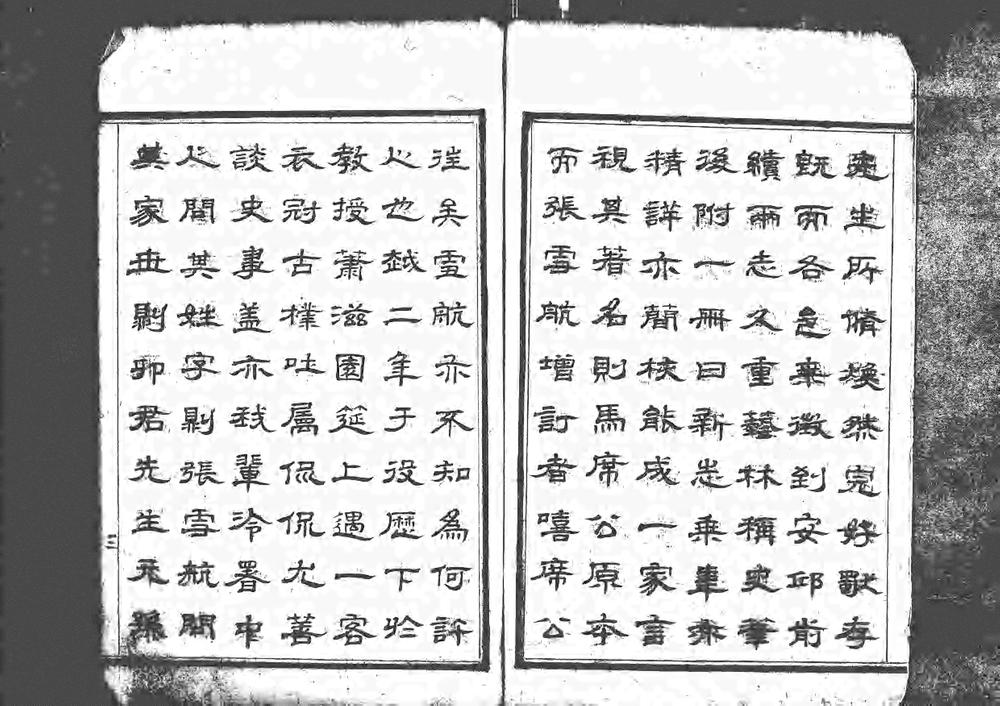 坐所脩煥然完好歌存
既而各邑乘徵到安邱前
續兩志久重藝林稱史筆
後附一冊曰新志乘事亦
精詳亦簡核能成一家言
視其著名則馬席公原本
而張雪航增訂者嘻席公
往矣雪航亦不知為何許
人也越二年于役歷下於
教授蕭滋園筵上遇一客
衣冠古樸吐属侃侃尤善
談史事盖亦我輩冷署中
人問其姓字則張雪航問
其家世則卯君先生孫
三